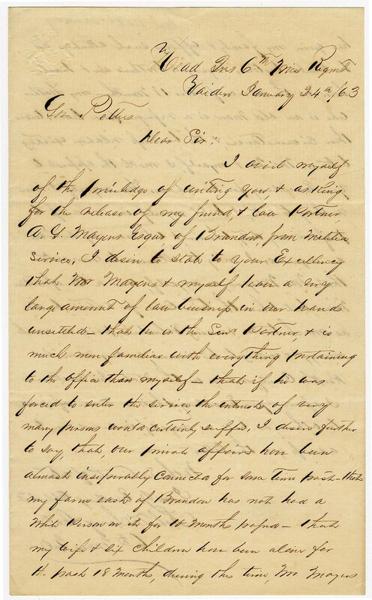 Head Qrs 6th Miss Regmt
Vaiden January 24th/63
Gov Pettus
Dear Sir:
I avail myself
of the priviledge of writing you, & asking
for the release of my friend, & law Partner
A. G. Mayers Esqur of Brandon, from Militia
Service, I desire to state to your Excellency
that Mr Mayers & myself have a very
large amount of law business in our hands
unsettled – that he is the Senr Partner, & is
much more familiar with everything pertaining
to the office than myself – that if he was
forced to enter the service, the interests of very
many persons would certainly suffer, I desire further
to say that, our private affairs have been
almost inseparably connected for some time past – that
my farm east of Brandon has not had a
White Person on it for months – that
my wife & six children have been alone for
the past 18 months, during this time, Mr Mayers